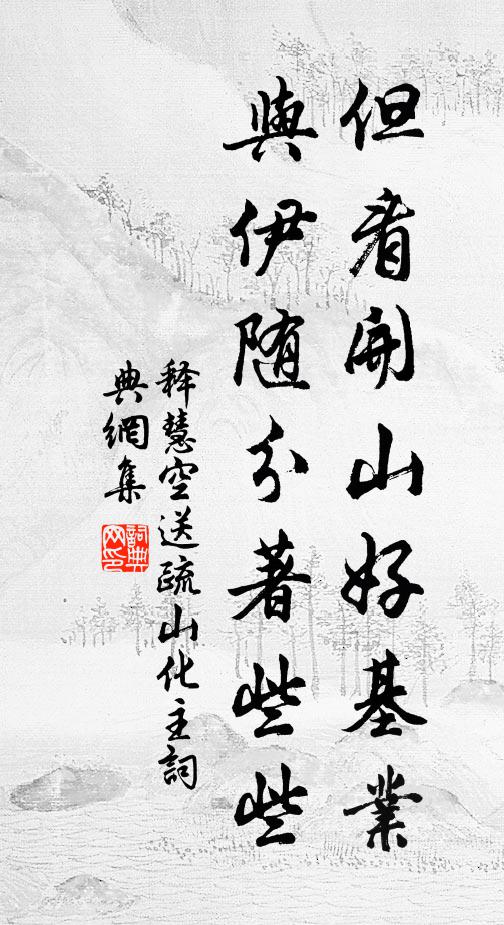 但看開山好基業
與伊随分著些些
释慧空送疏山化主詞
典網集
詞典
网印